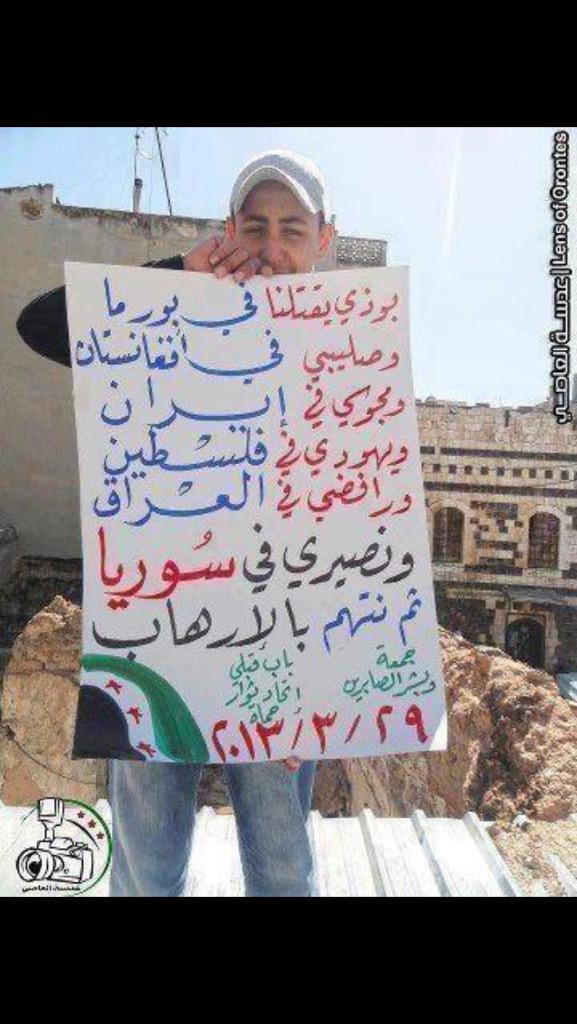 بوذي يقتلنا في بورما
وصليبي في أفغانستان
ومجوسي في إيران
ويهودي في فلسطين
ورافضي في العراق
ونصيري في سوريا
ثم نتهم بالإرهاب
جمعة
وبشر الصابرين
باب قبلي
اتحاد ثوار
حماة
٢٠١٣/٣/٢٩
عدسة العاصي | Lens of Orontes
عدسة العاصي